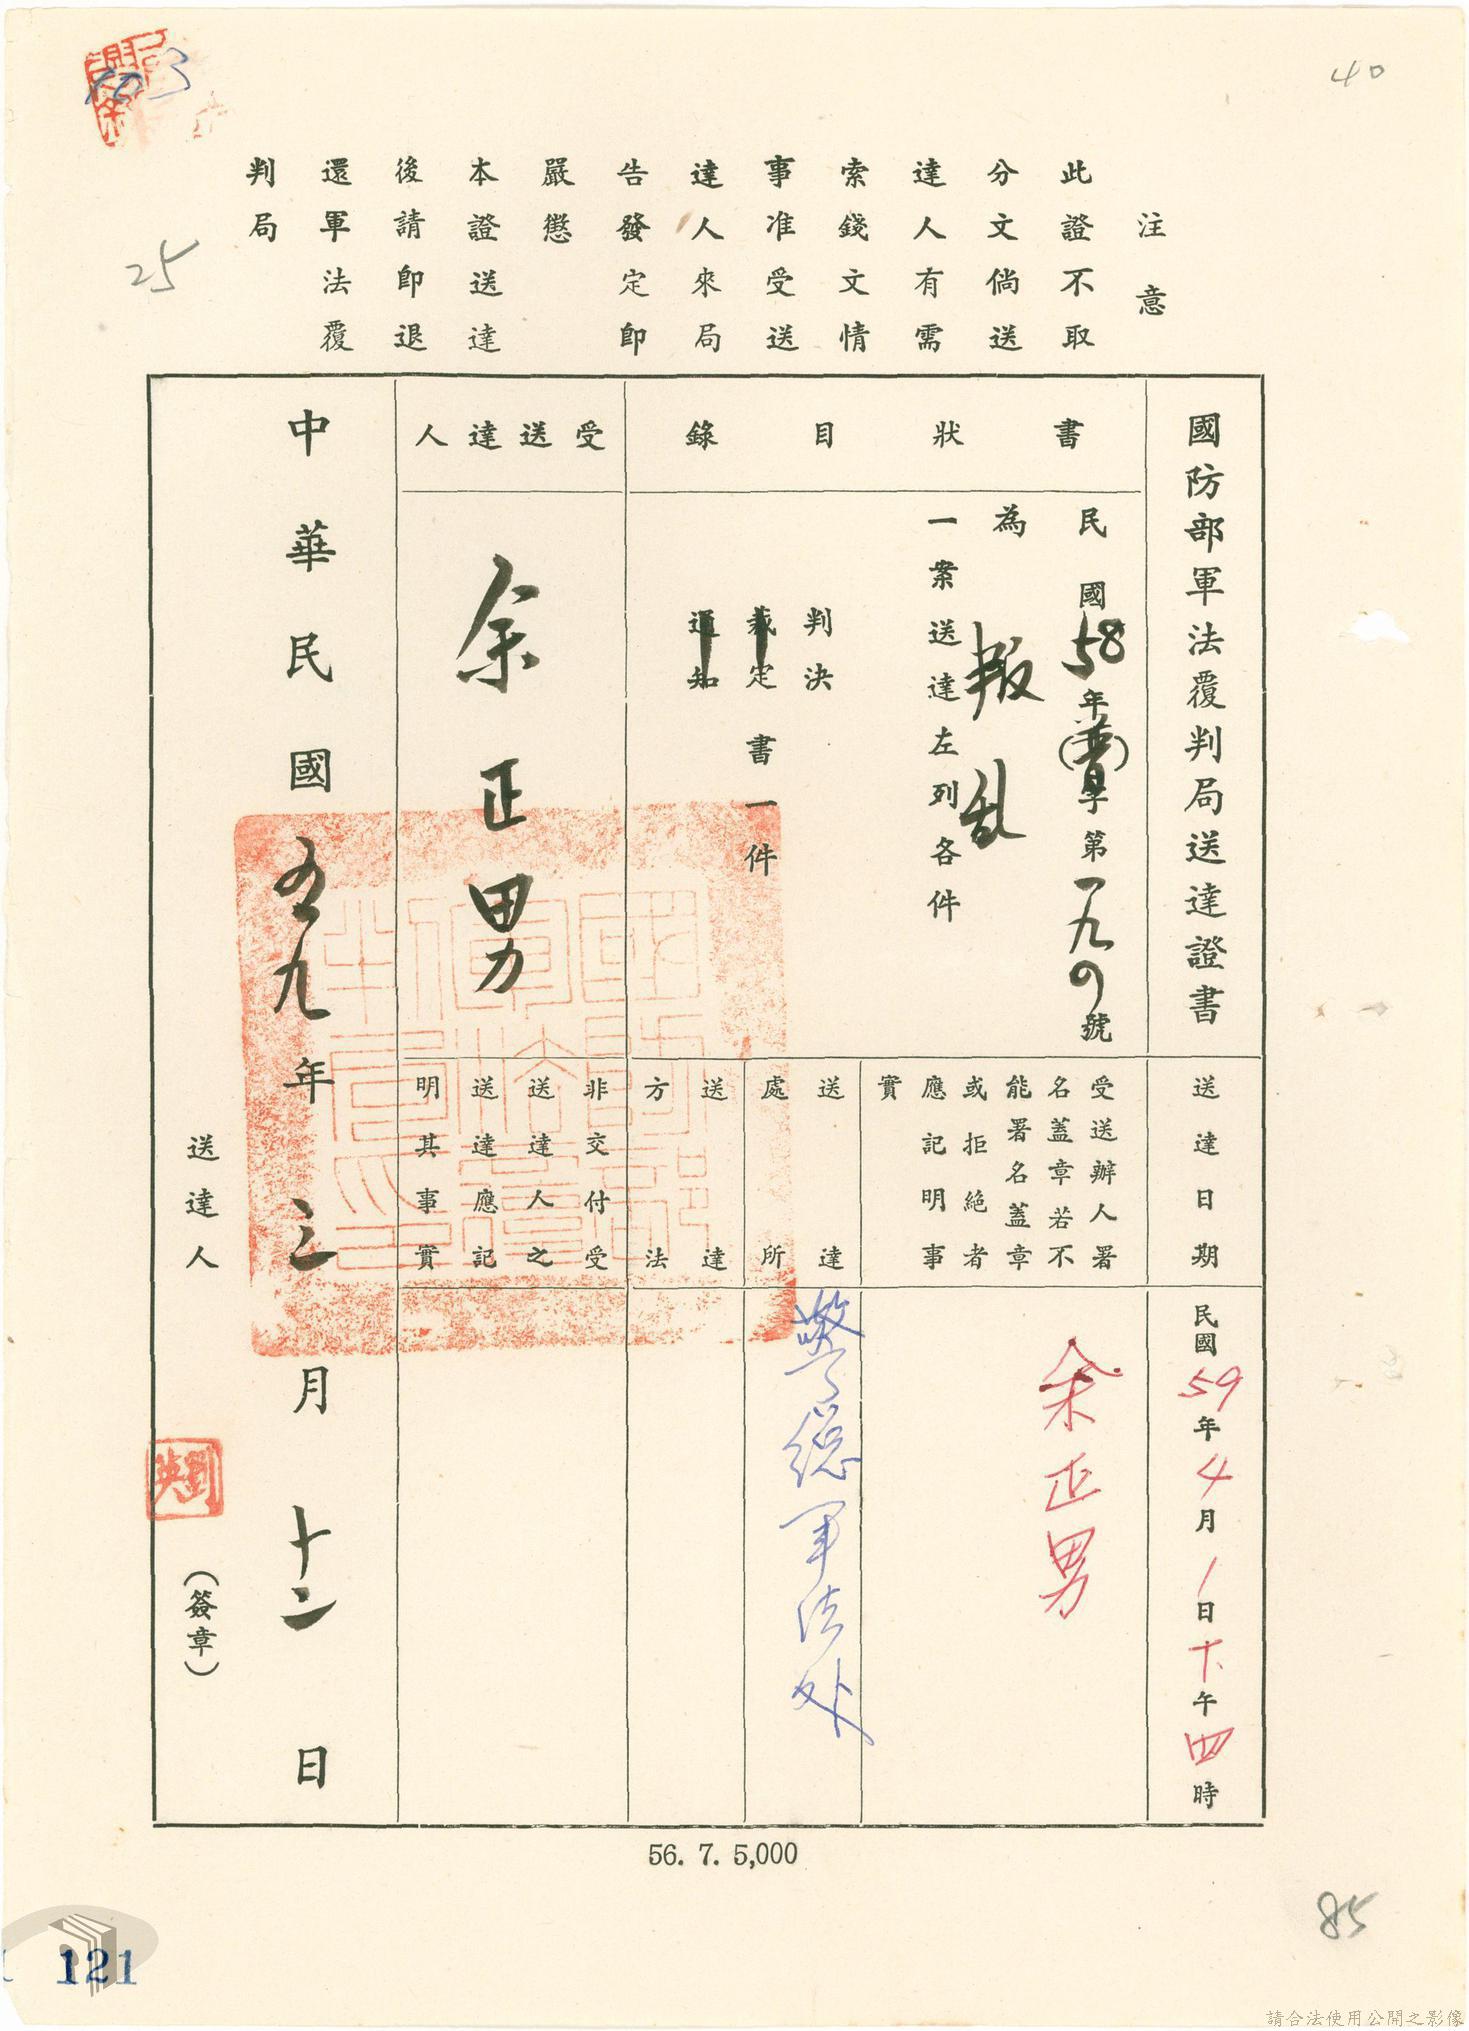 40
103
25
注意
此證不取
分文倘送
達人有需
索錢文情
事准受送
達人來局
告發定即
嚴懲
本證送達
後請即退
還軍法覆
判局
國防部軍法覆判局送達證書
書狀目錄
民國58年(普)字第一九0號
為叛乱
一案送達左列各件
判決
裁定書一件
通知
受送達人
余正男
送達日期
民國59年4月1日下午四時
受送辦人署
名蓋章若不
能署名蓋章
或拒絕者
應記明事
實
余正男
送達
處所
警總軍法处
送達
方法
非交付受
送達人之
送達應記
明其事實
中華民國五九年三月十二日
送達人
劉英
(簽章)
56. 7. 5,000
85
121
請合法使用公開之影像